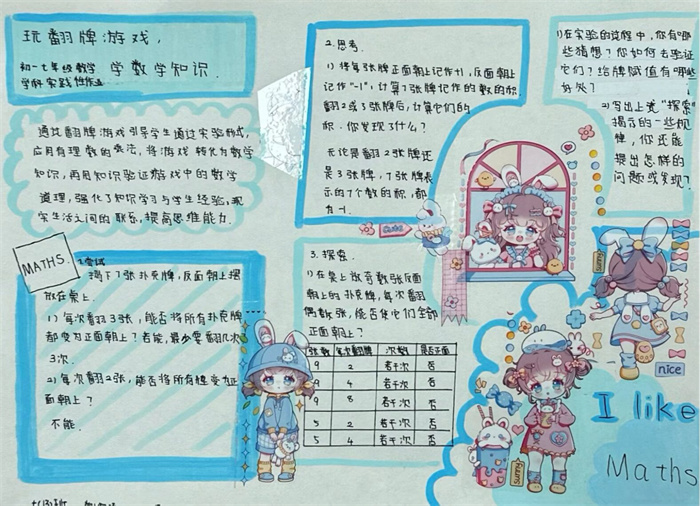 玩翻牌游戏，
初一七年级数学
学科实践性作业
学数学知识.
通过翻牌游戏引导学生通过实验形式,
应用有理数的乘法，将游戏转化为数学
知识，再用知识验证游戏中的数学
道理，强化了知识学习与学生经验，现
实生活之间的联系，提高思维能力.
MATHS.
1.尝试
将下7张扑克牌，反面朝上摆
放在桌上.
1）每次翻3张，能否将所有扑克牌
都变为正面朝上？若能，最少要翻几次
3次.
2）每次翻2张，能否将所有牌变为正
面朝上？
不能.
2.思考.
1）将每张牌正面朝上记作+1，反面朝上
记作"-1"，计算7张牌记作的数的积.
翻2或3张牌后，计算它们的
积.你发现了什么？
无论是翻2张牌还
是3张牌，7张牌表
示的7个数的积，都
为-1.
Cute
3.探索.
1）在桌上放奇数张反面
朝上的扑克牌，每次翻
偶数张，能否使它们全部
正面朝上？
张数 每次翻牌 次数 是否正面
9 2 若干次 否
9 4 若干次 否
9 8 若干次 否
5 2 若干次 否
5 4 若干次 否
1）在实验的过程中，你有哪
些猜想？你如何去验证
它们？给牌赋值有哪些
好处？
2）写出上述"探索"
揭示的一些规
律，你还能
提出怎样的
问题或发现？
sunny
nice
sunny
I like
Maths